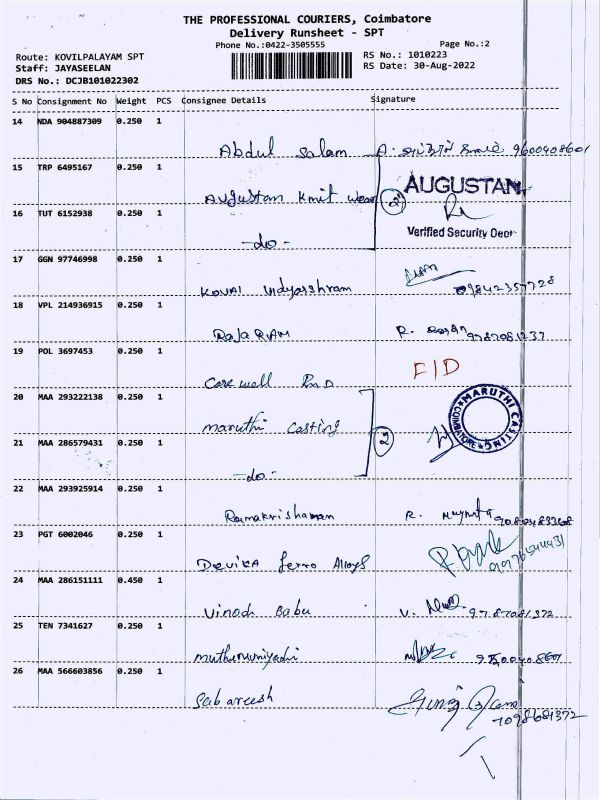 THE PROFESSIONAL COURIERS, Coimbatore
Delivery Runsheet - SPT
Phone No.:0422-3505555
Page No.:2
Route: KOVILPALAYAM SPT
RS No.: 1010223
Staff: JAYASEELAN
RS Date: 30-Aug-2022
DRS No.: DCJB101022302
S No Consignment No Weight PCS Consignee Details Signature
14 NDA 904887309 0.250 1
Abdul Salam A. 9600408601
15 TRP 6495167 0.250 1
Augustan Knit wear 2 AUGUSTAN
16 TUT 6152938 0.250 1
Verified Security Dept
-do-
17 GGN 97746998 0.250 1
KOVAI Vidyashram 09842357728
18 VPL 214936915 0.250 1
RajaRAM R. 9787081237
19 POL 3697453 0.250 1
F/D
Care well
20 MAA 293222138 0.250 1
maruthi Casting MARUTHI CASTING COIMBATORE
21 MAA 286579431 0.250 1
2
-do-
22 MAA 293925914 0.250 1
Ramakrishanan R. 9080483368
23 PGT 6002046 0.250 1
Devika ferro Alloys
24 MAA 286151111 0.450 1
Vinodh Babu V. 9787081372
25 TEN 7341627 0.250 1
26 MAA 566603856 0.250 1
Sabareesh
7098681372